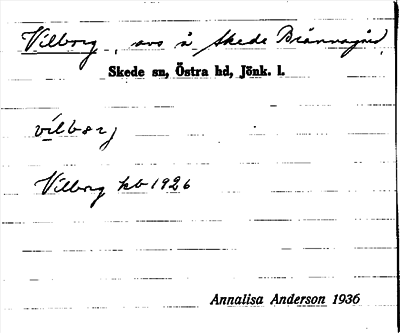 Vilborg, avs å Skede Brännagård,
Skede sn, Östra hd, Jönk. l.
vilborj
Vilborg kb 1926
Annalisa Anderson 1936